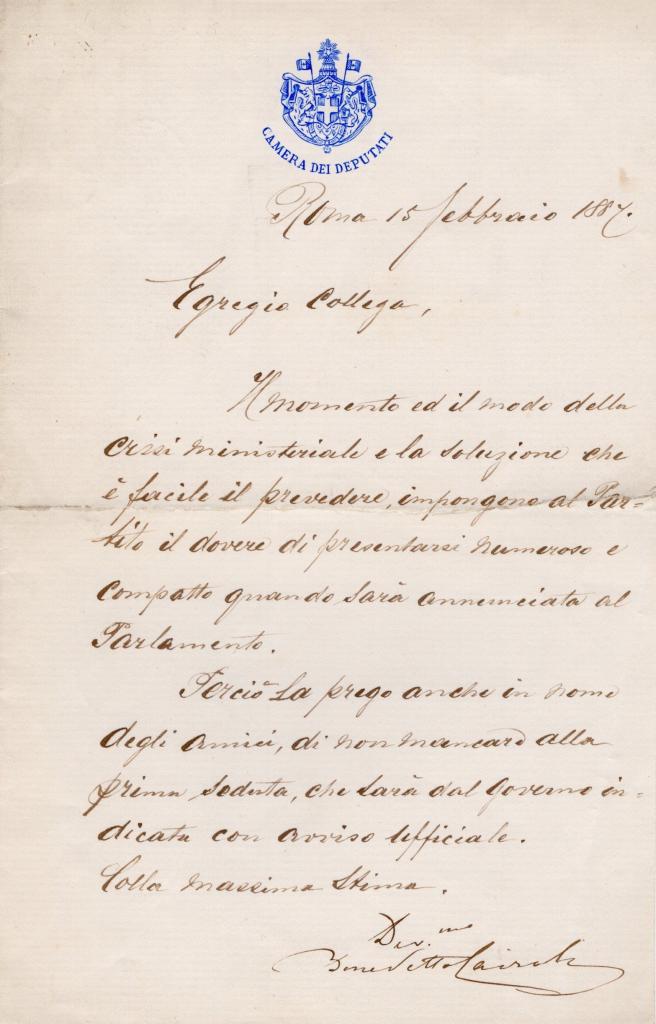 CAMERA DEI DEPUTATI
Roma 15 febbraio 1887.
Egregio Collega,
Il momento ed il modo della
crisi ministeriale e la soluzione che
è facile il prevedere, impongono al Par=
tito il dovere di presentarsi numeroso e
compatto quando sarà annunciata al
Parlamento.
Perciò La prego anche in nome
degli amici, di non mancare alla
prima seduta, che sarà dal Governo in=
dicata con avviso ufficiale.
Colla massima stima.
Dev.mo
Benedetto Cairoli